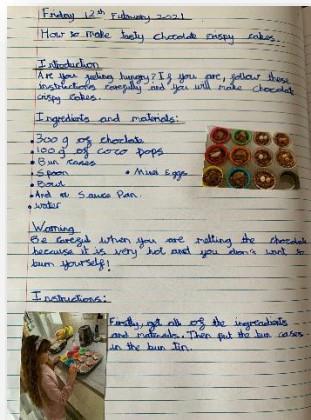 Friday 12th February 2021
How to make tasty chocolate crispy cakes.
Introduction
Are you feeling hungry? If you are, follow these
instructions carefully and you will make chocolate
crispy cakes.
Ingredients and materials:
• 300g of choclate
• 100g of coco pops
• Bun cases
• Spoon • Mini Eggs
• Bowl
• And a Sauce Pan
• water
Warning
Be careful when you are melting the chocolate
because it is very hot and you don't want to
burn yourself!
Instructions:
Firstly, get all of the ingredients
and materials. Then put the bun cases
in the bun tin.